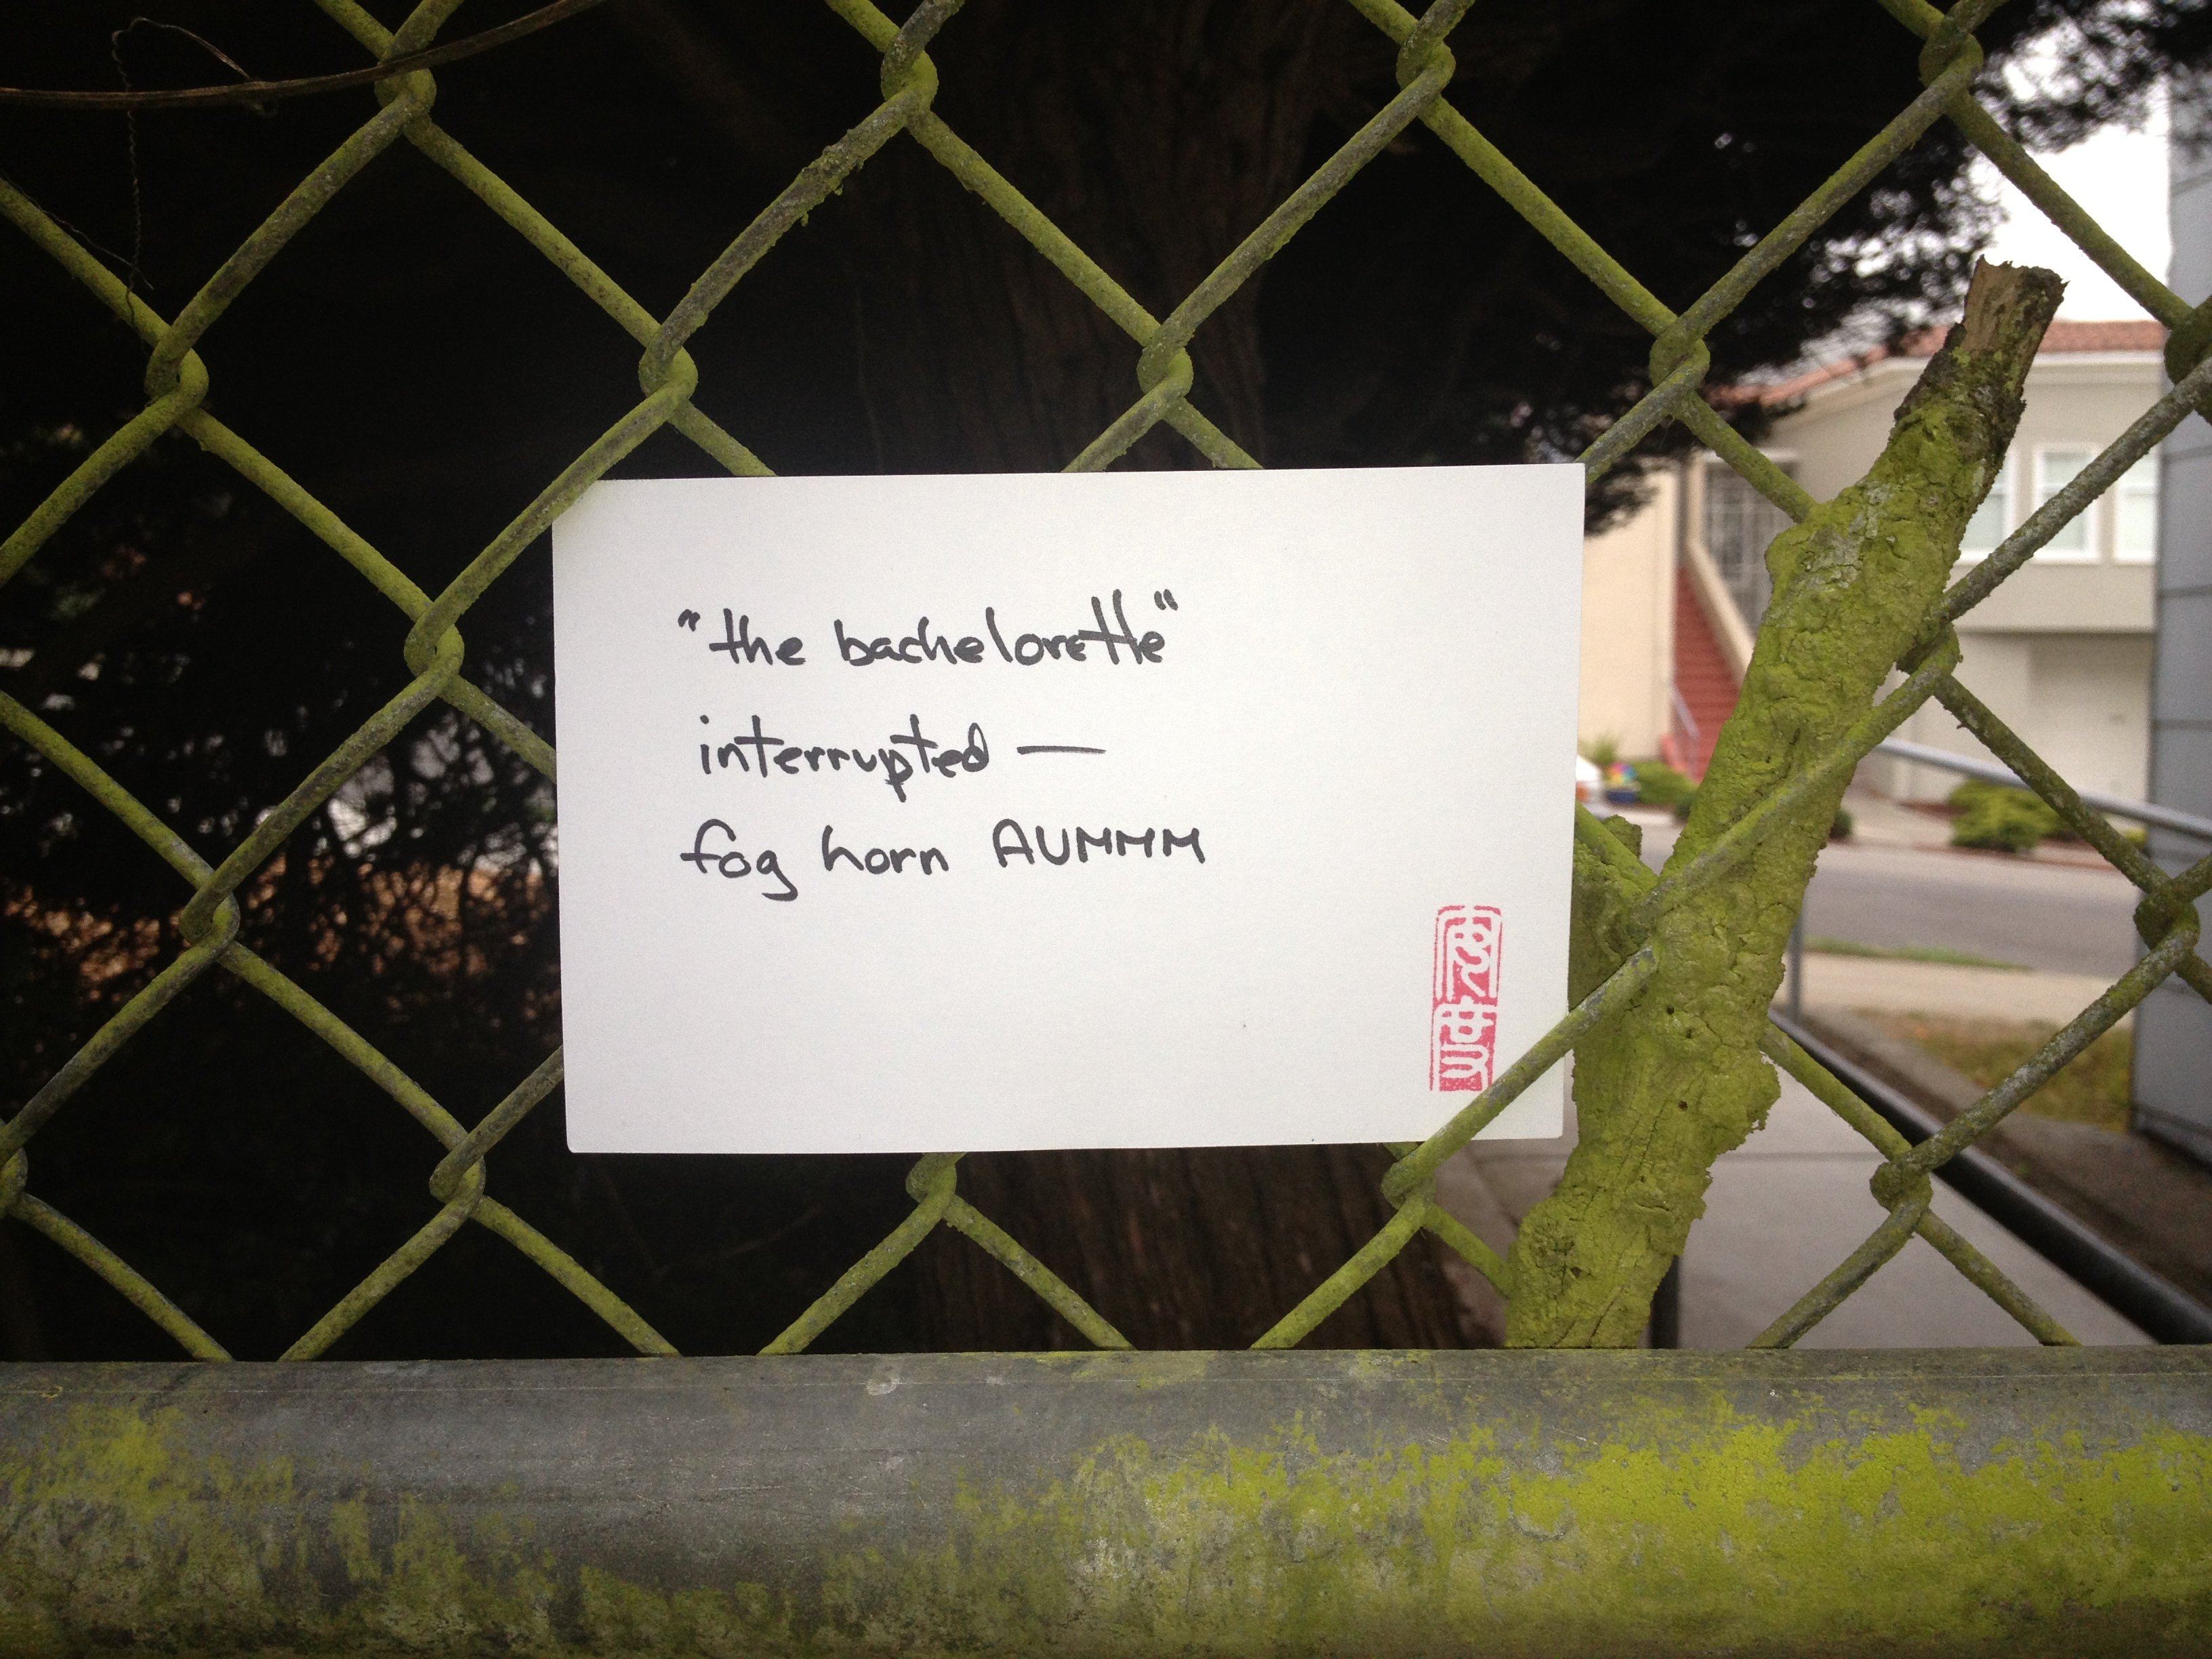 "the bachelorette"
interrupted —
fog horn AUMMM